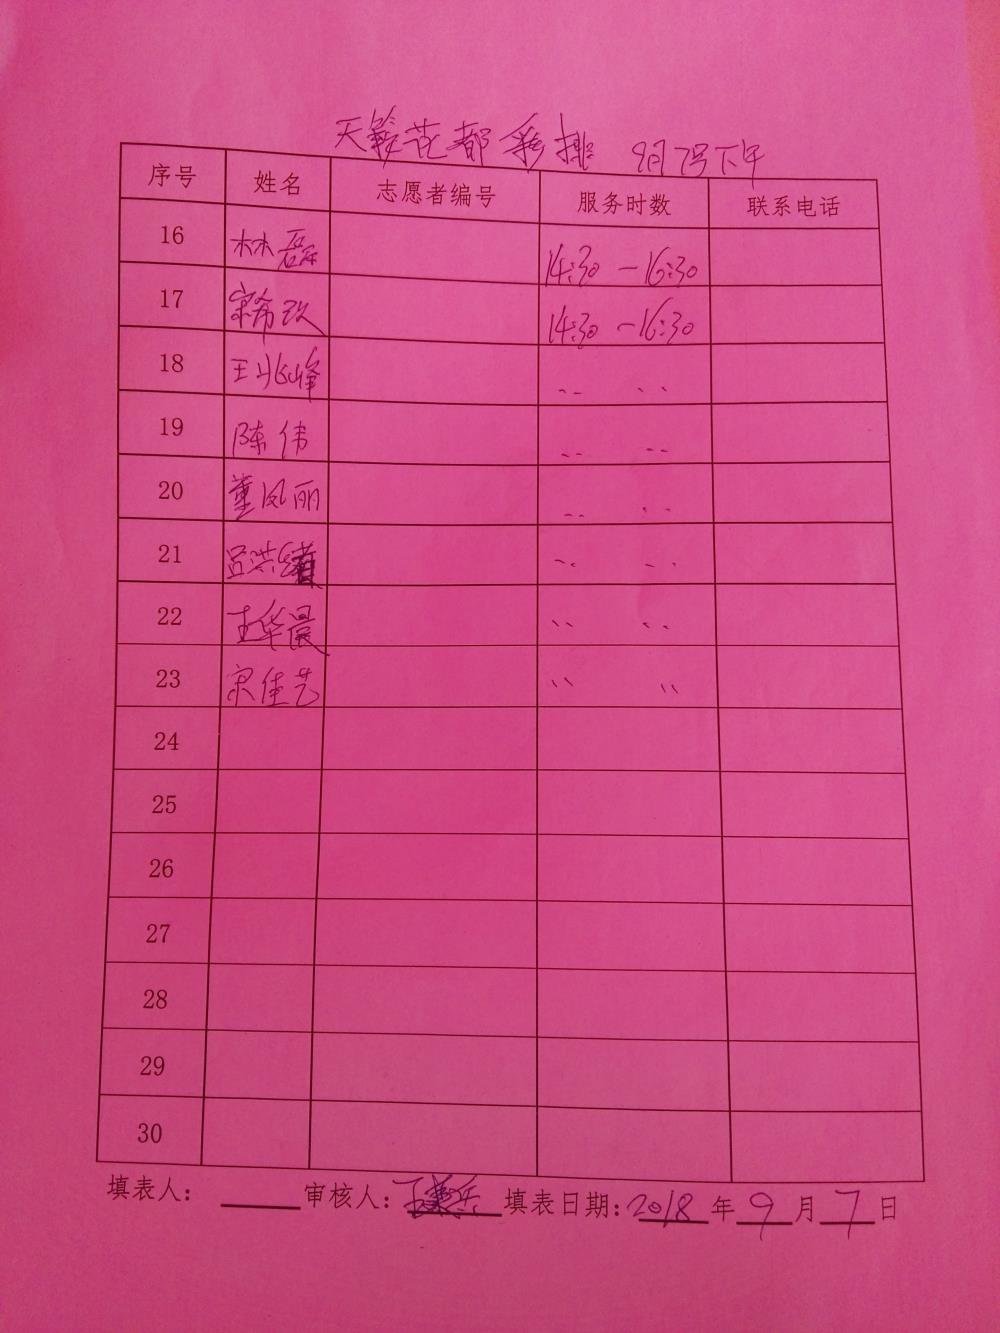 天 花都彩排 9月7号下午
序号 姓名 志愿者编号 服务时数 联系电话
16 林磊 14:30-16:30
17 宋希玖 14:30-16:30
18 王兆峰 〃 〃
19 陈伟 〃 〃
20 董凤丽 〃 〃
21 吕洪 〃 〃
22 王华晨 〃 〃
23 宋佳艺 〃 〃
24
25
26
27
28
29
30
填表人: 审核人: 填表日期:2018年9月7日